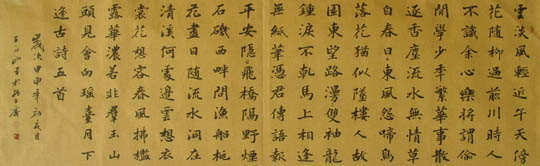 雲淡風輕近午天傍
花隨柳過前川時人
不識余心樂將謂偷
閒學少年繁華事散
逐香塵流水無情草
自春日暮東風怨啼鳥
落花猶似墮樓人故
園東望路漫々雙袖龍
鍾淚不乾馬上相逢
無紙筆憑君傳語報
平安隱々飛橋隔野煙
石磯西畔問漁船桃
花盡日隨流水洞在
清溪何處邊雲想衣
裳花想容春風拂檻
露華濃若非群玉山
頭見會向瑤臺月下
逢古詩五首
歲次甲申年